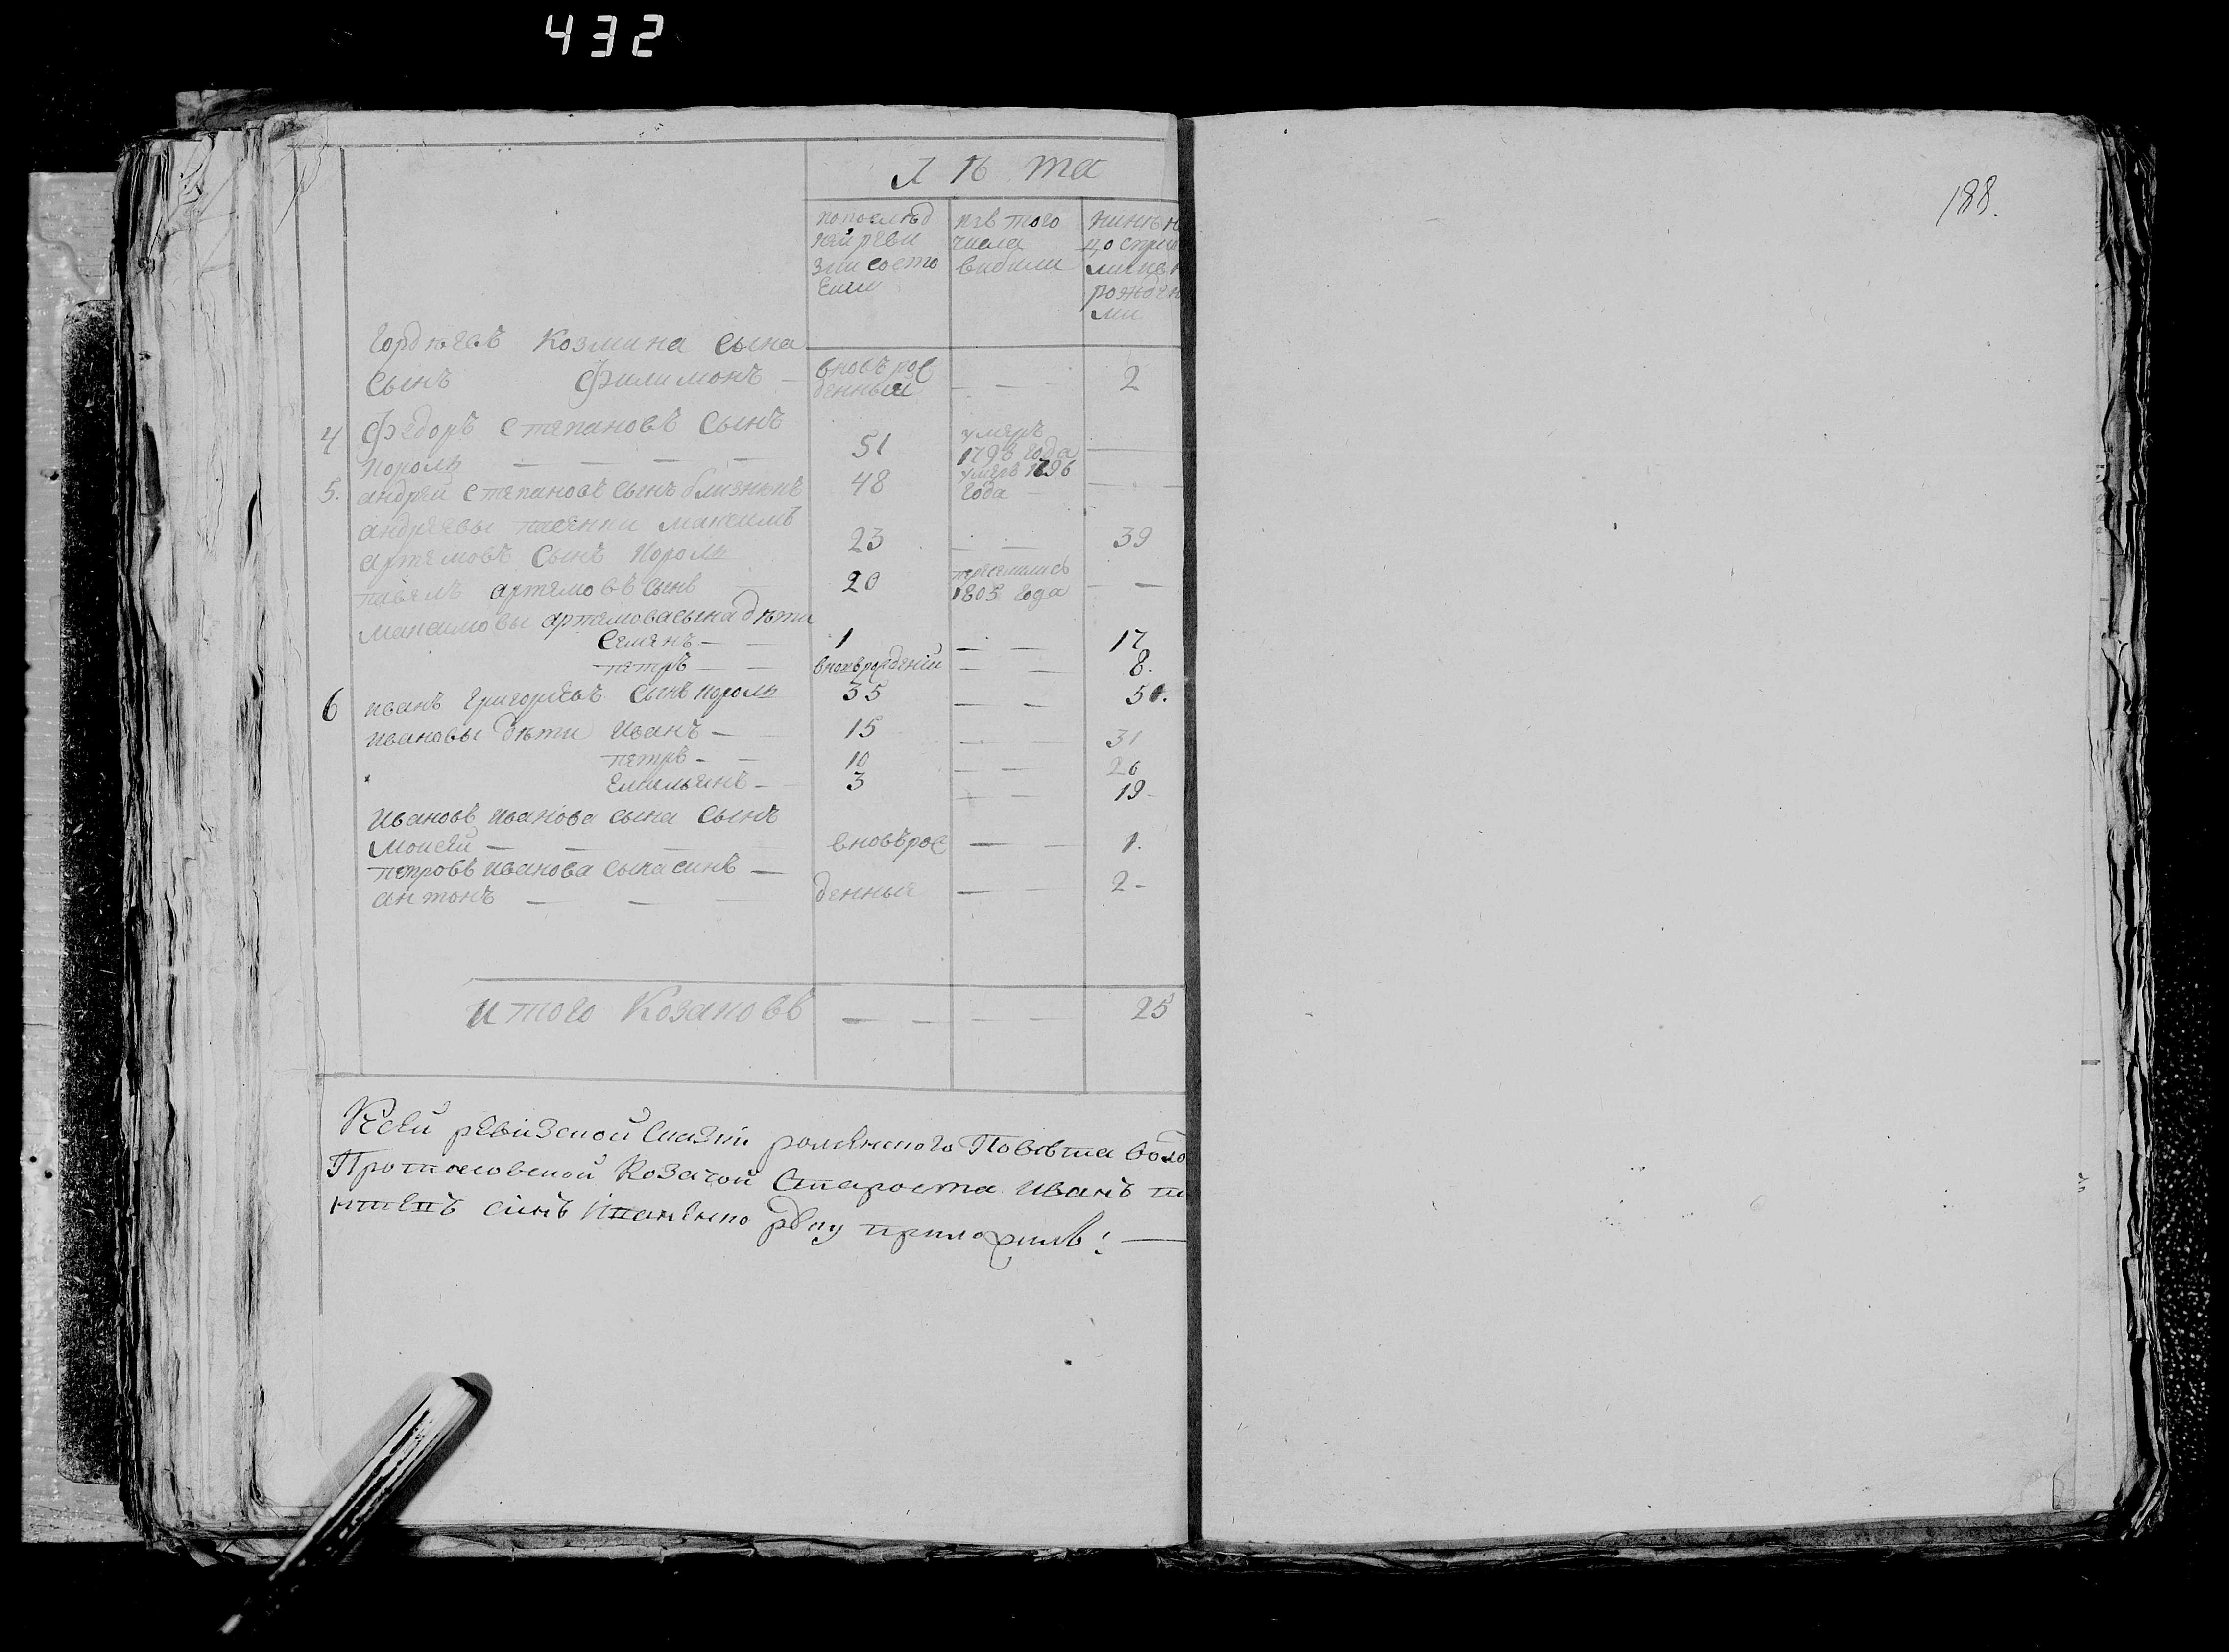 432
188.
Лѣта
попослѣд нѣй реви зии состо яли
изъ того числа вибыли
нинѣ н цо сприб лими рожден ми
Гордѣевъ Козмина сына
сынъ Филимонъ — вновъ рож денный — — 2
4 Федоръ Степановъ Сынъ
Король — — — — 51 умеръ 1798 года —
5. андрей Степановъ сынъ близнѣцъ 48 умеръ 1796 года — — —
андреевы пасенки максимъ
артемовъ Сынъ Король 23 — — 39
павелъ артемовъ сынъ 20 1805 года — —
максимовы артемова сына дѣти
Семенъ — — 1 — — 17
петръ — — вновърожденій — — 8.
6 иванъ Григорьевъ Сынъ Король 35 — — 51.
ивановы дѣти Иванъ — 15 — — 31
петръ — — 10 — — 26
Емельянъ — 3 — — 19 -
Ивановъ иванова сына Сынъ
Моисей — — — вновърож — — 1.
петровъ иванова сына синъ —
антонъ — — — денные — — 2 -
итого Козаковъ — — — — 25
Ксей ревизской Сказки роменского Повѣта
Козачой Староста иванъ
синъ руку приложилъ: —